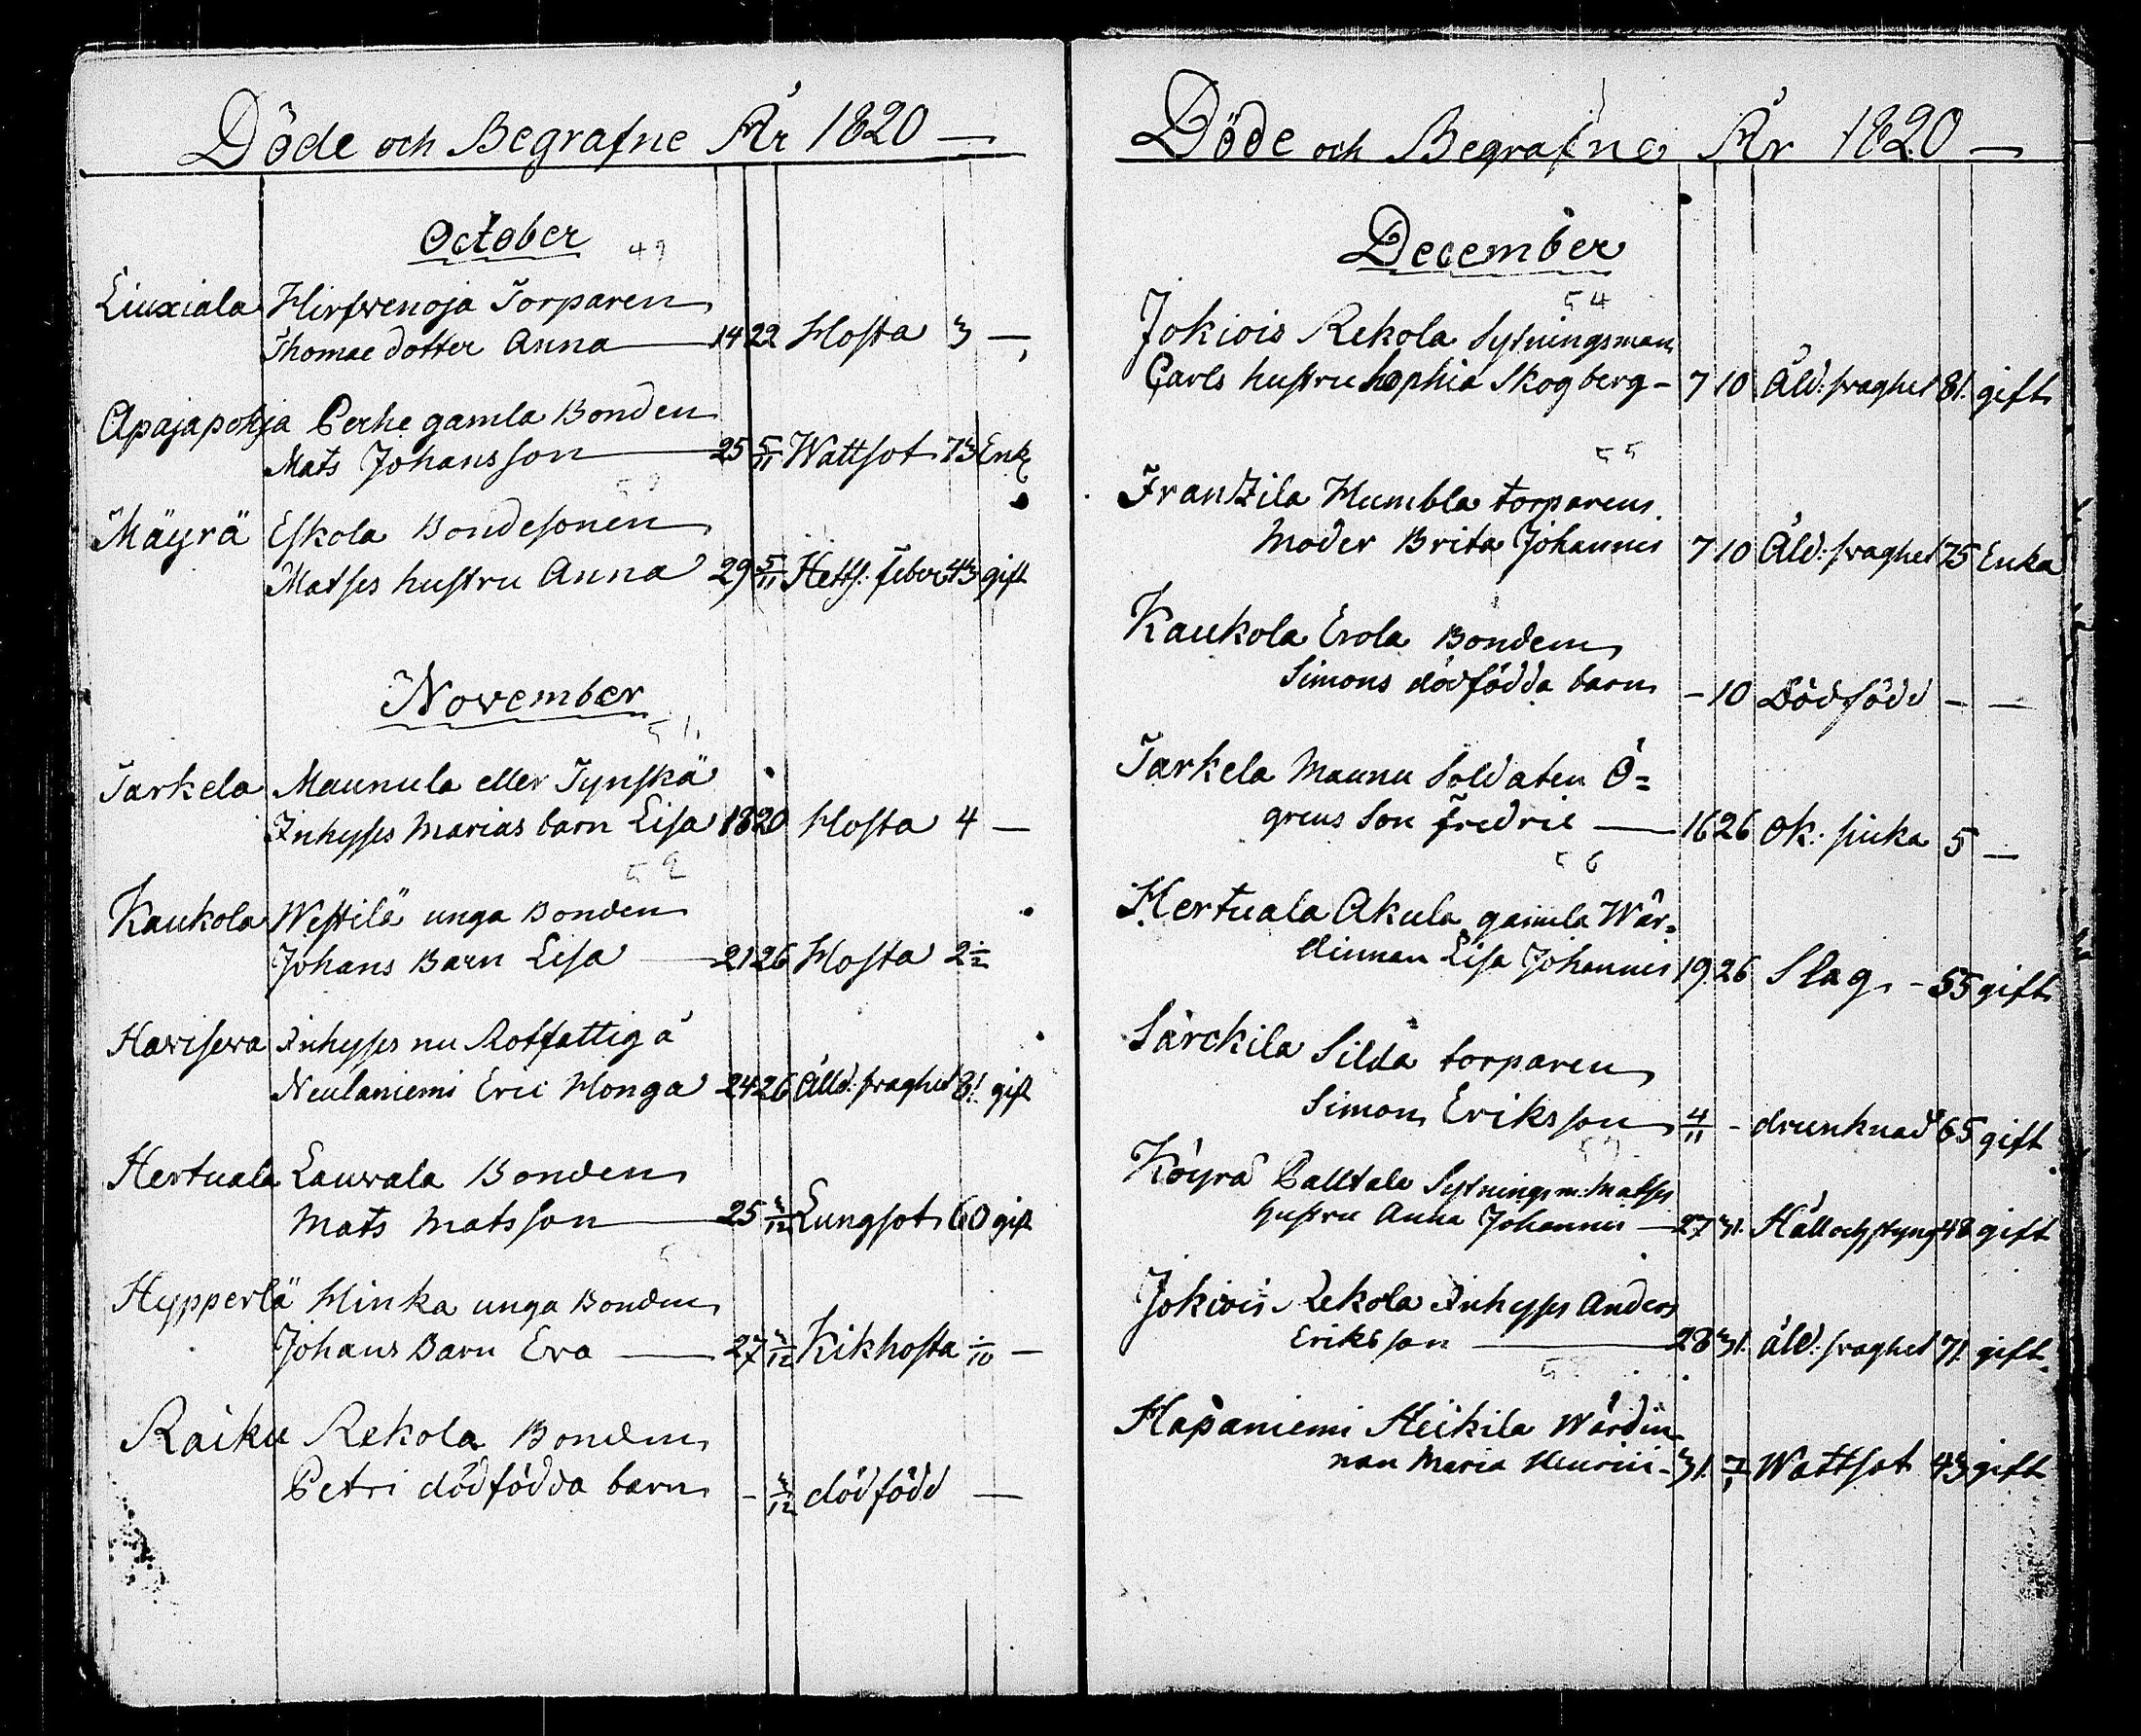 Döde och Begrafne År 1820 —
October
49
Liuxiala Hirfvenoja Torparen
Thomae dotter Anna — 14 22 Hosta 3 —
Apajapohja Perhe gamla Bonden
Mats Johansson — 25 5/11 Wattsot 73 Enk
Mäyrä Eskola Bondesonen
Matses hustru Anna 29 5/11 Hetts: feber 43 gift
November
51
Tarkela Maunula eller Tynskä
Inhyses Marias barn Lisa 18 20 Hosta 4 —
52
Kaukola Westilä unga Bonden
Johans Barn Lisa — 21 26 Hosta 2 1/2
Havisewa Inhyses nu Rotfattig å
Neulaniemi Eric Honga 24 26 Ålld: svaghet 81 gift
Hertuala Lauvala Bonden
Mats Matsson — 25 3/12 Lungsot 60 gift
Hypperlä Hinka unga Bonden
Johans Barn Eva — 27 3/12 Kikhosta 1/10 —
Raiku Rekola Bonden
Petri dödfödda barn - 3/12 dödfödd —
Döde och Begrafne År 1820 —
December
54
Jokiois Rekola Sytningsman
Carls hustru Sophia Skogberg - 7 10 Åld: svaghet 81. gift
55
Frantzila Humbla torparens
Moder Brita Johannis 7 10 Åld: svaghet 75 Enka
Kaukola Erola Bonden
Simons dödfödda barn - 10 Dödfödd - —
Tarkela Maunu Soldaten Ö=
grens Son Fredric — 16 26 Ok: siuka 5 —
56
Hertuala Akula gamla Wär=
dinnan Lisa Johannis 19 26 Slag - 55 gift
Särckilä Silda torparen
Simon Eriksson 4/11 - drunknad 65 gift
Köyrä Palltala Sytningsm: Matses
hustru Anna Johannis — 27 31. Håll och styng 48 gift
Jokiois Rekola Inhyses Anders
Eriksson — 28 31. åld: svaghet 71. gift
58
Hapaniemi Heikila Wärdin=
nan Maria Henrici - 31. 7/1 Wattsot 43 gift